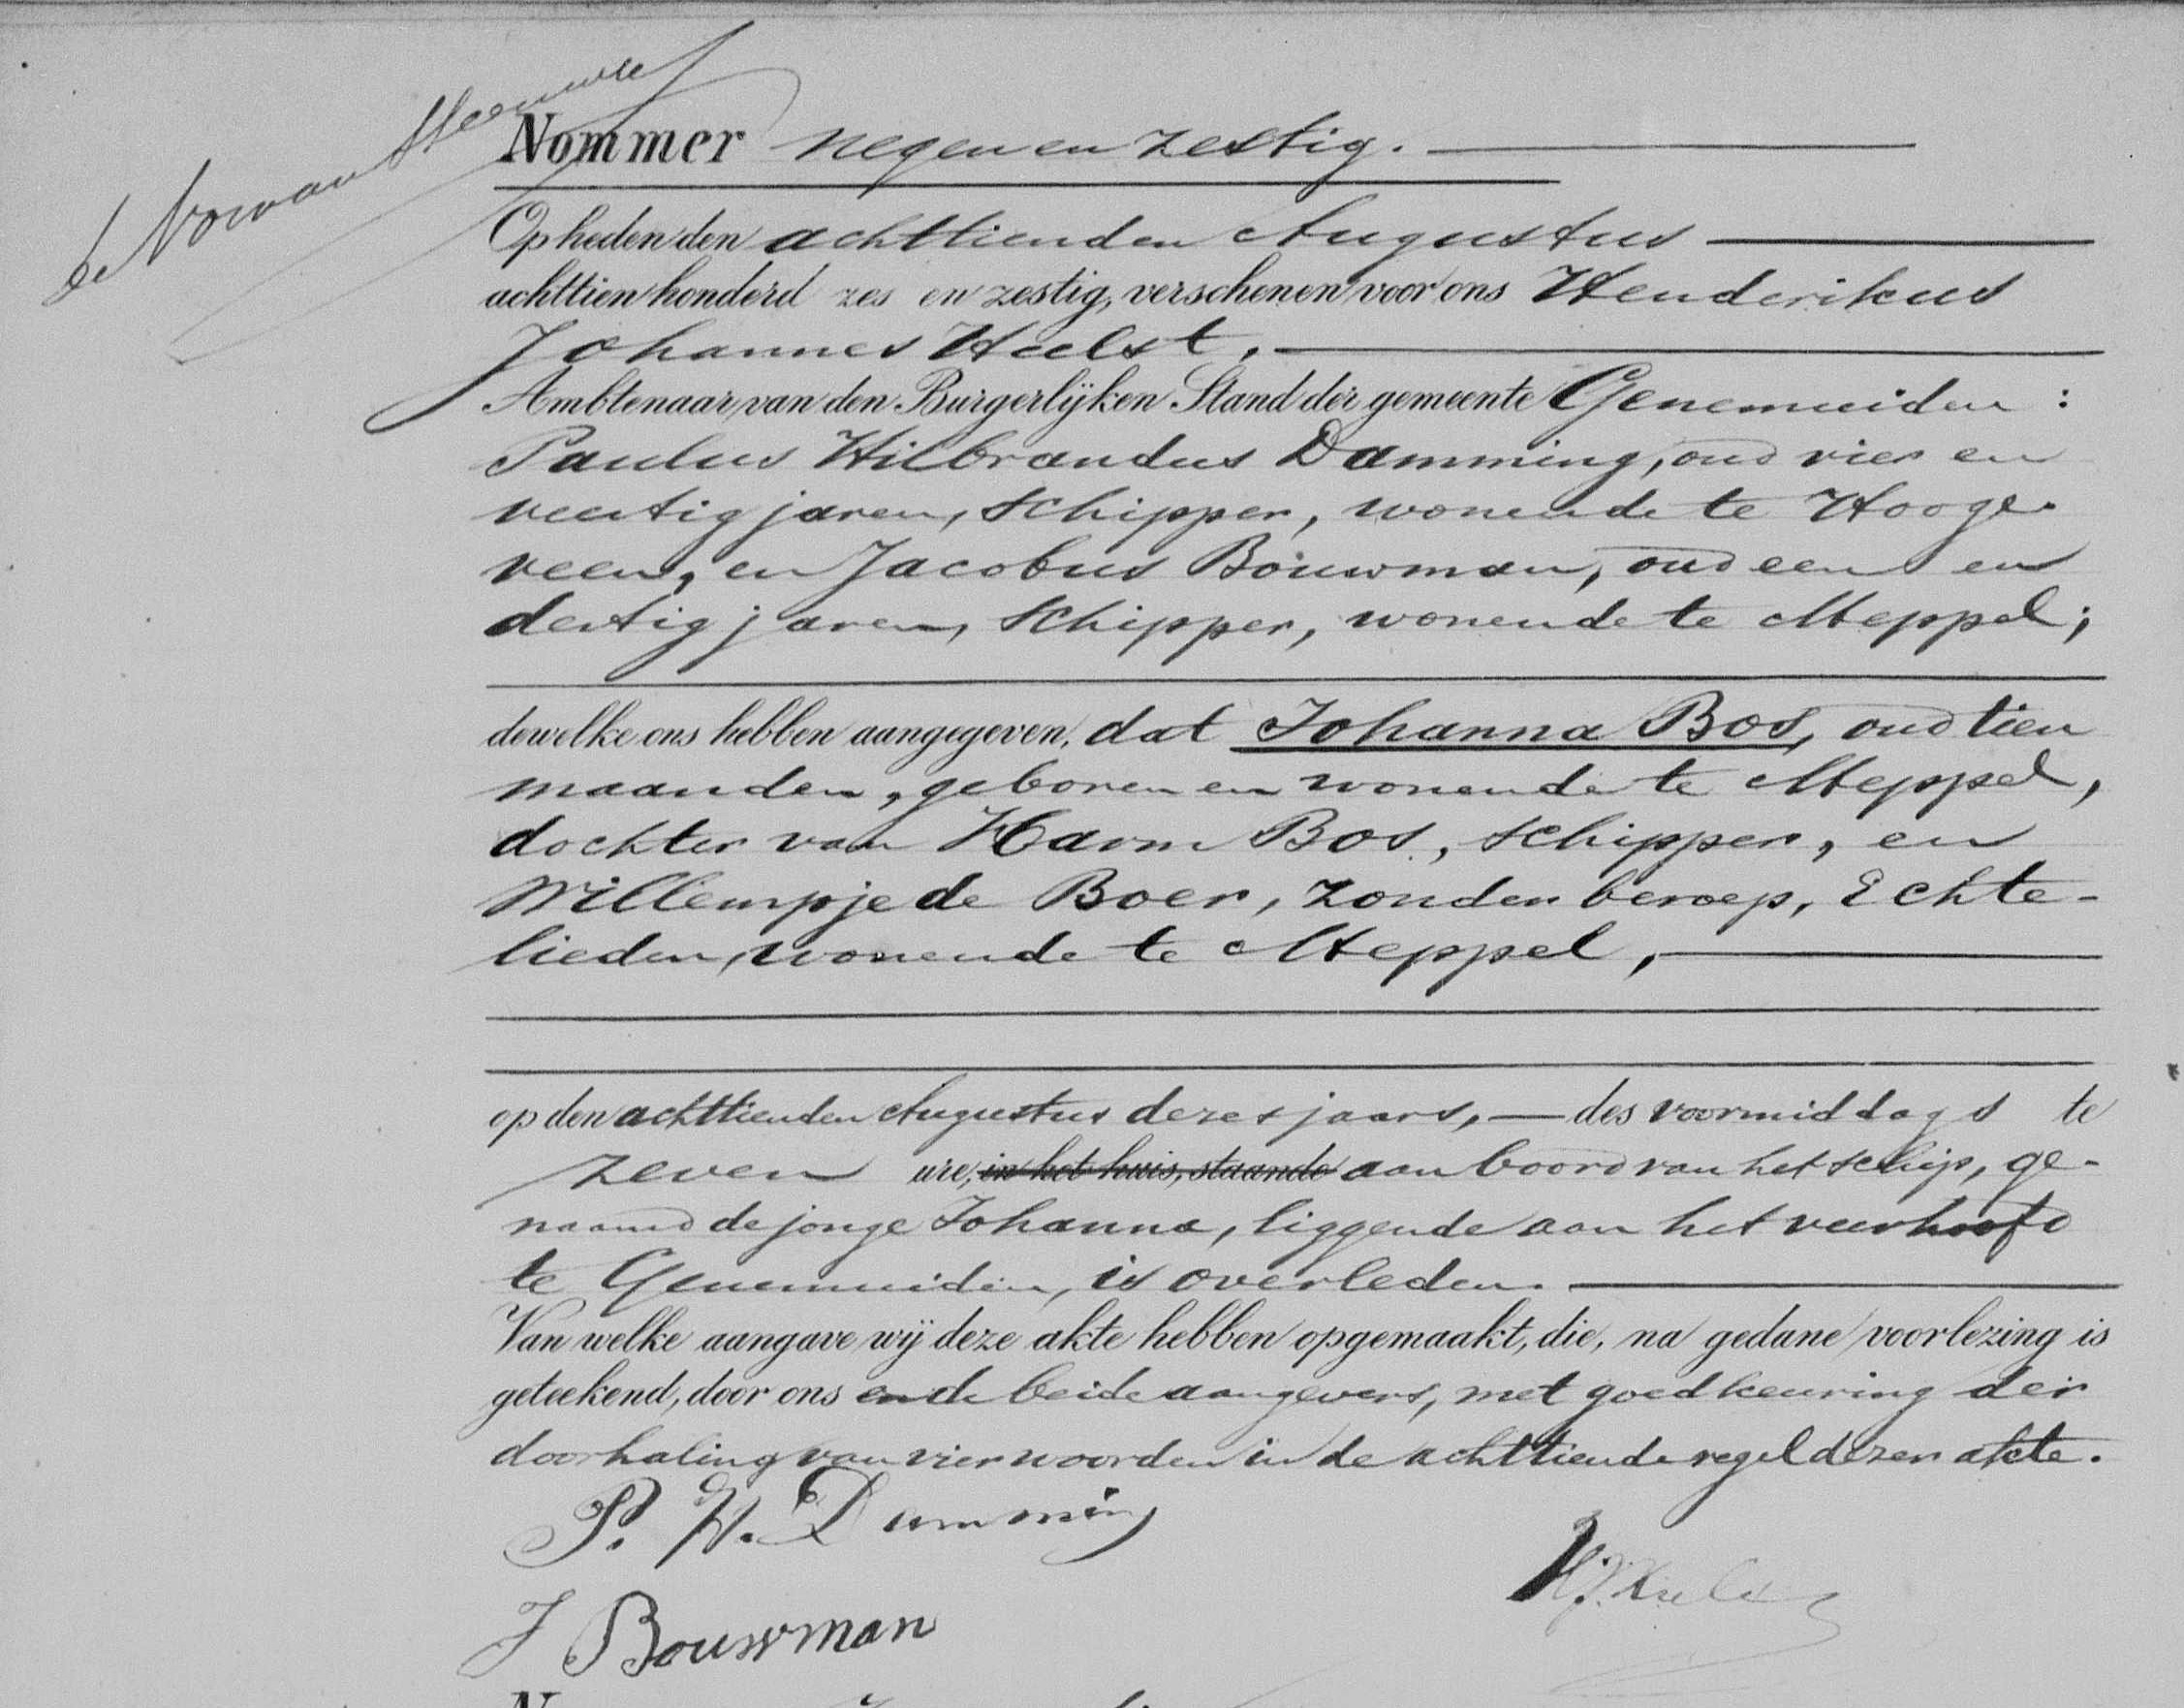 Nommer negen en zestig.
Op heden den achttienden Augustus
achttien honderd zes en zestig, verschenen voor ons Henderikus
Johannes Hulst,
Ambtenaar van den Burgerlijken Stand der gemeente Genemuiden:
Paulus Hilbrandus Damming, oud vier en
veertig jaren, schipper, wonende te Hooge-
veen, en Jacobus Bouwman, oud een en
dertig jaren, schipper, wonende te Meppel;
dewelke ons hebben aangegeven, dat Johanna Bos, oud tien
maanden, geboren en wonende te Meppel,
dochter van Harm Bos, schipper, en
Willempje de Boer, zonder beroep, Echte-
lieden, wonende te Meppel,
op den achttienden Augustus dezes jaars, des voormiddags te
zeven ure, in het huis, staande aan boord van het schip, ge-
naamd de jonge Johanna, liggende aan het veerhoofd
te Genemuiden, is overleden.
Van welke aangave wij deze akte hebben opgemaakt, die, na gedane voorlezing is
geteekend, door ons en de beide aangevers, met goedkeuring der
doorhaling van vier woorden in de achttiende regel dezer akte.
P. H. Damming
H.J. Hulst
J Bouwman